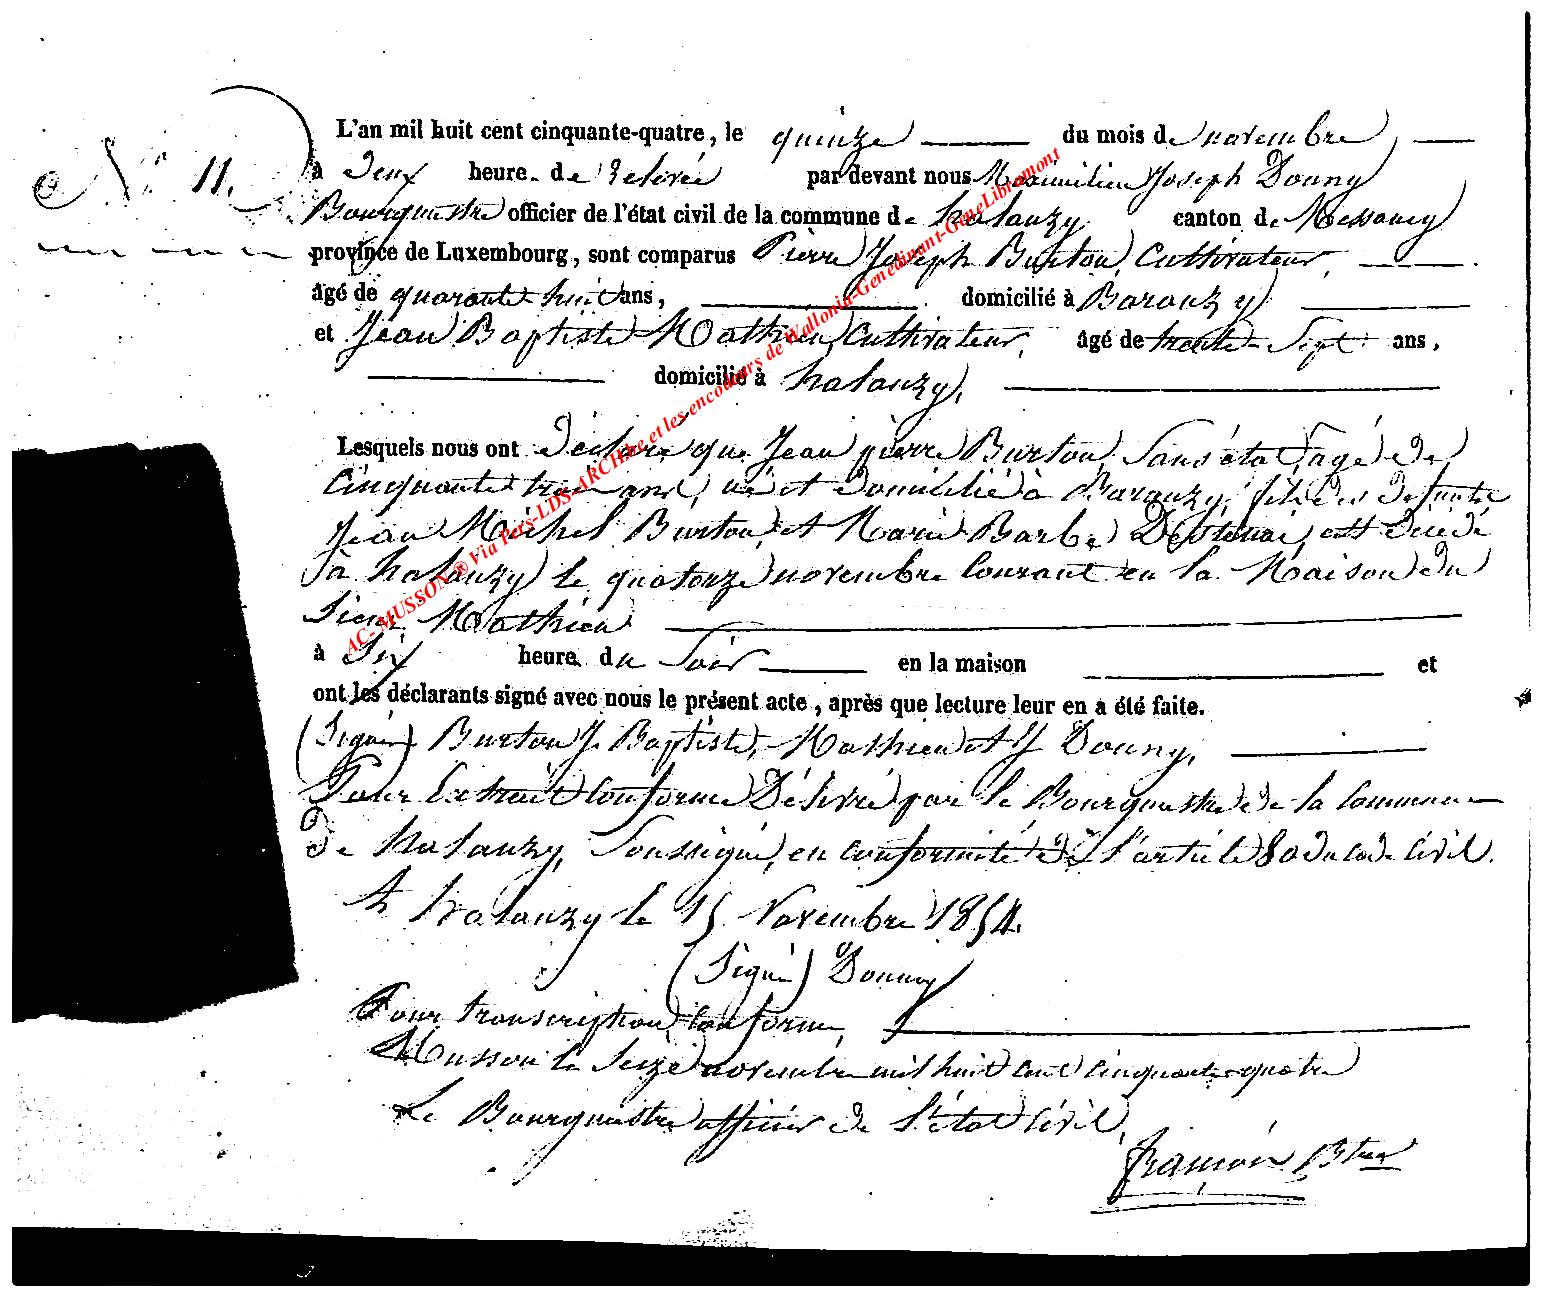 N° 11.
L'an mil huit cent cinquante-quatre, le quinze du mois de novembre,
à Deux heure. de relevée par devant nous Maximilien Joseph Donny
Bourgmestre officier de l'état civil de la commune de halanzy canton de Messancy
province de Luxembourg, sont comparus Pierre Joseph Burton, Cultivateur,
âgé de quarante huit ans, domicilié à Baranzy
et Jean Baptiste Mathieu, Cultivateur, âgé de trente-Sept ans,
domicilié à halanzy,
Lesquels nous ont Déclaré que Jean pierre Burton, Sans état, agé de
Cinquante trois ans, né et Domicilié à Baranzy, fils des Defunts
Jean Michel Burton, et Marie Barbe est Décédé
à halanzy le quatorze novembre Courant en la Maison du
Sieur Mathieu
à Six heure du Soir en la maison et
ont les déclarants signé avec nous le présent acte, après que lecture leur en a été faite.
(Signé) Burton J. Baptiste, Mathieu et J Donny,
Pour Extrait Conforme Délivré par le Bourgmestre de la Commune
De halanzy, Soussigné, en conformité de l'article 80 du code Civil.
A halanzy le 15 Novembre 1854.
(Signé) Donny
Pour transcription Conforme,
Musson le Seize novembre mil huit cent cinquante-quatre
Le Bourgmestre officier de l'état Civil,
françois Btre
AC- MUSSON ® Via Pers-LDS-ARCHbe et les encodeurs de Wallonia-Genedinant-GeneLibramont